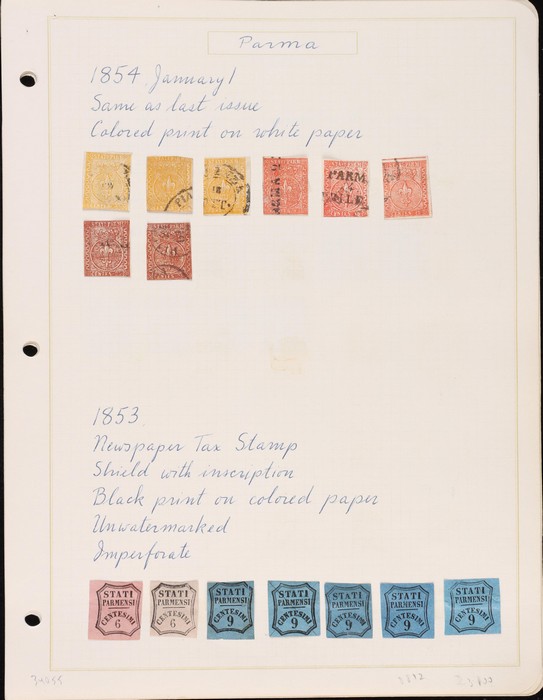 Parma
1854 January 1
Same as last issue
Colored print on white paper
PARMA
1853
Newspaper Tax Stamp
Shield with inscription
Black print on colored paper
Unwatermarked
Imperforate
STATI PARMENSI CENTESIMI 6
STATI PARMENSI CENTESIMI 6
STATI PARMENSI CENTESIMI 9
STATI PARMENSI CENTESIMI 9
STATI PARMENSI CENTESIMI 9
STATI PARMENSI CENTESIMI 9
STATI PARMENSI CENTESIMI 9